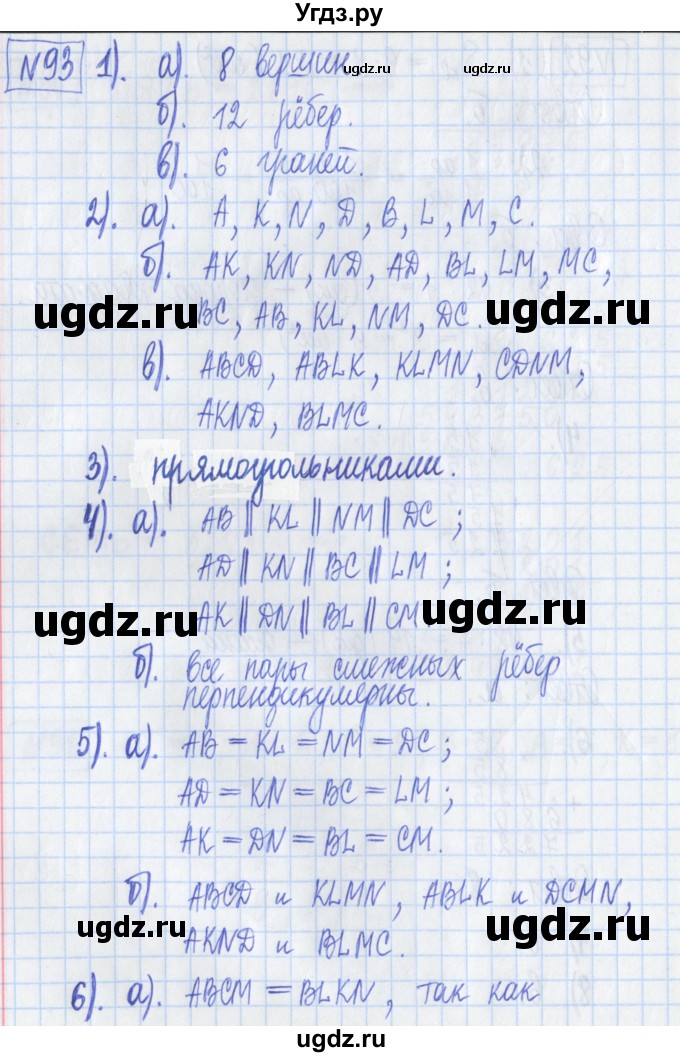 Угдз.ру
№93 1). а). 8 вершин. ugdz.ru ugdz.ru
б). 12 рёбер.
в). 6 граней.
2). а). A, K, N, D, B, L, M, C.
б). AK, KN, ND, AD, BL, LM, MC,
ugdz.ru BC, AB, KL, NM, DC. ugdz.ru
в). ABCD, ABLK, KLMN, CDNM,
AKND, BLMC.
3). прямоугольниками.
4). а). AB || KL || NM || DC ;
AD || KN || BC || LM ;
ugdz.ru AK || DN || BL || CM ugdz.ru
б). все пары смежных рёбер
перпендикулярны.
5). а). AB = KL = NM = DC ;
AD = KN = BC = LM ;
AK = DN = BL = CM.
б). ABCD и KLMN, ABLK и DCMN,
ugdz.ru AKND и BLMC. ugdz.ru
6). а). ABCM = BLKN, так как
ugdz.ru